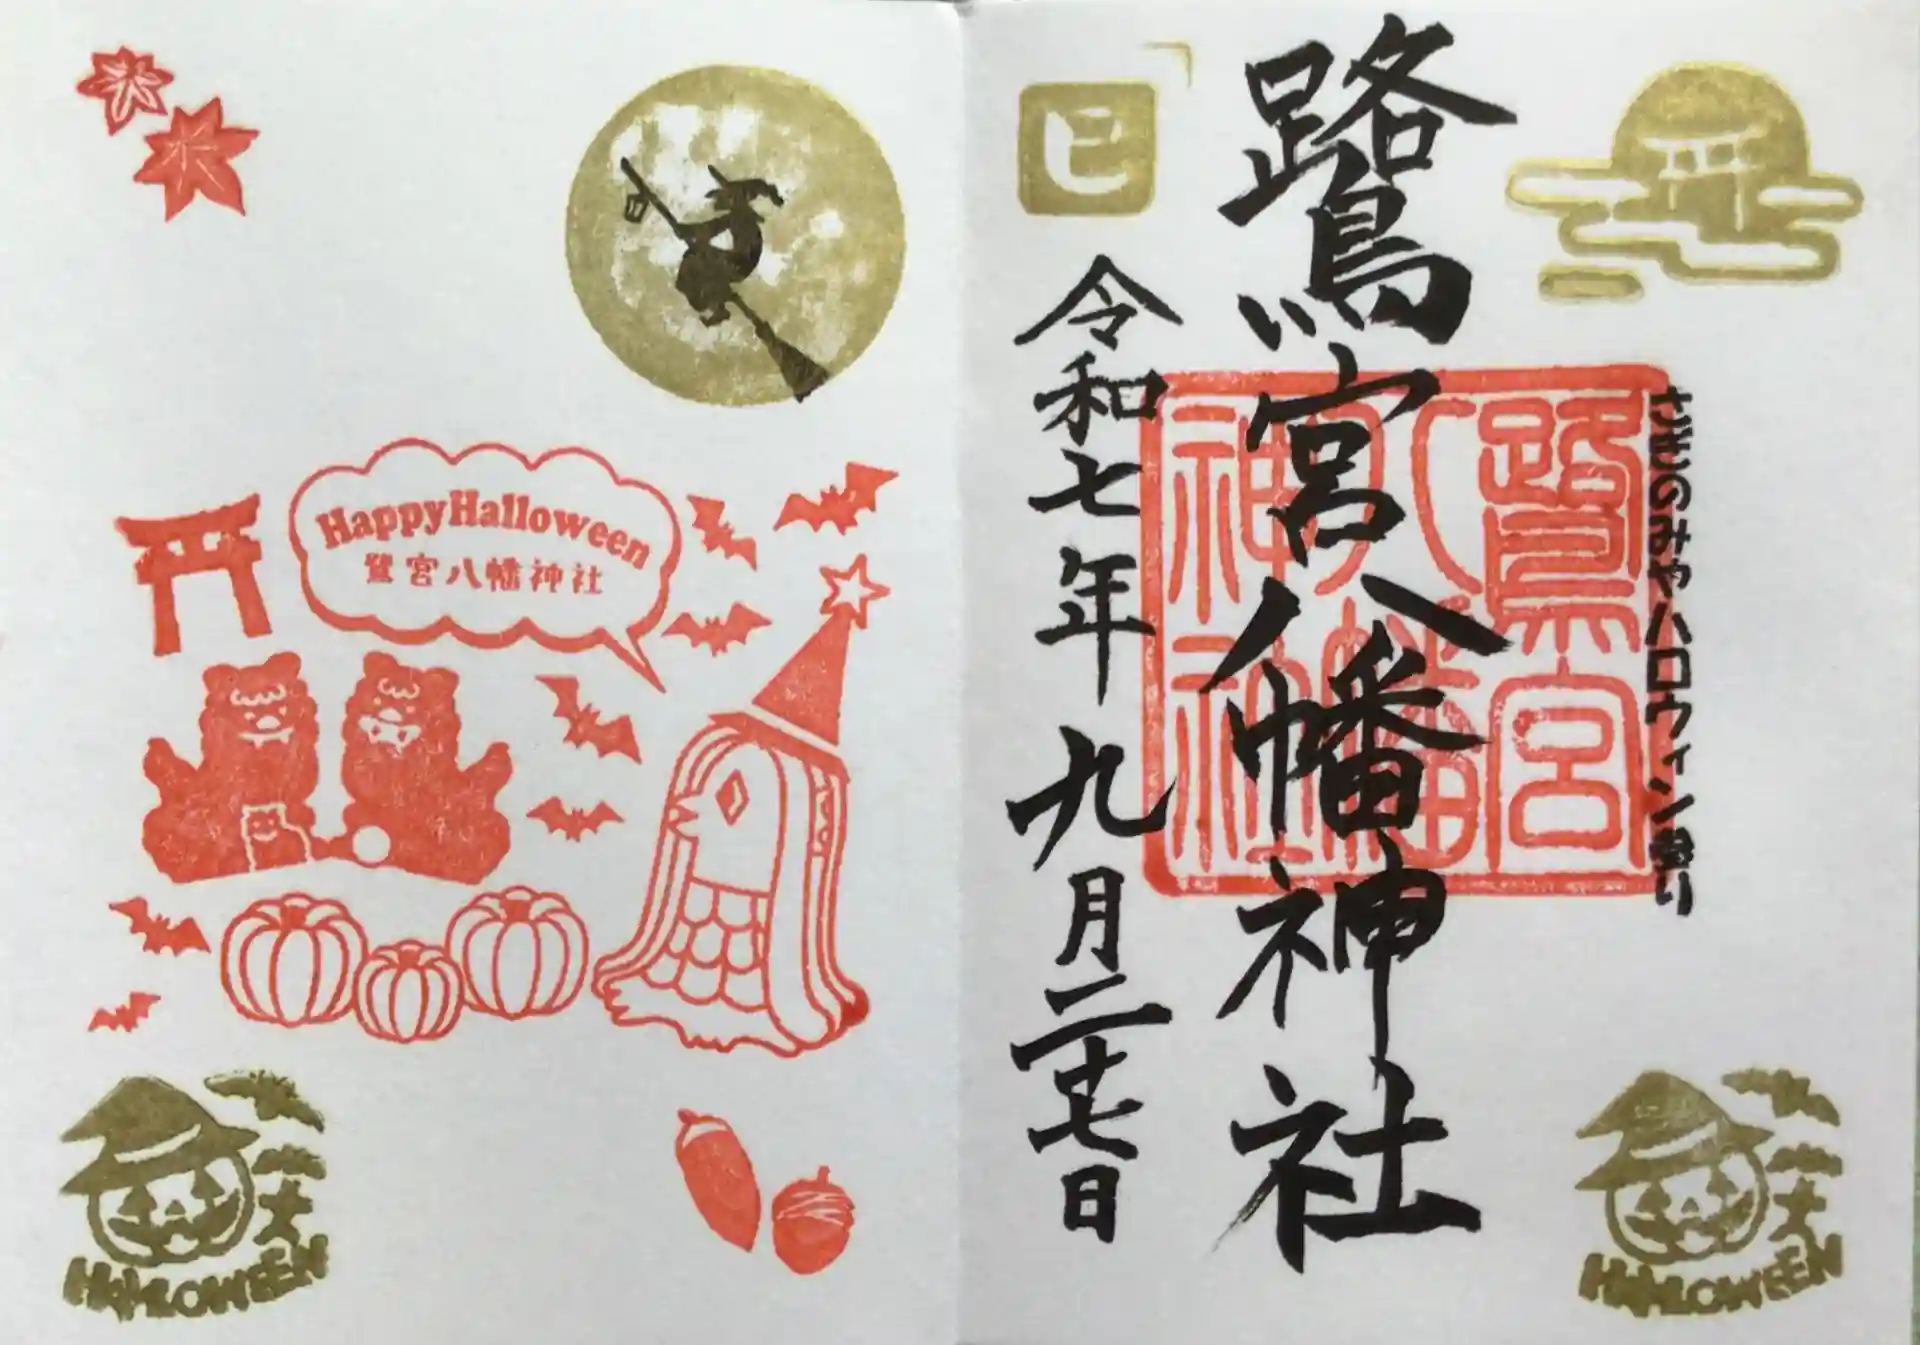 さぎのみやハロウィン
鷺宮八幡神社
鷺宮
八幡
神社
巳
令和七年九月二十七日
HALLOWEEN
HappyHalloween
鷺宮八幡神社
HALLOWEEN